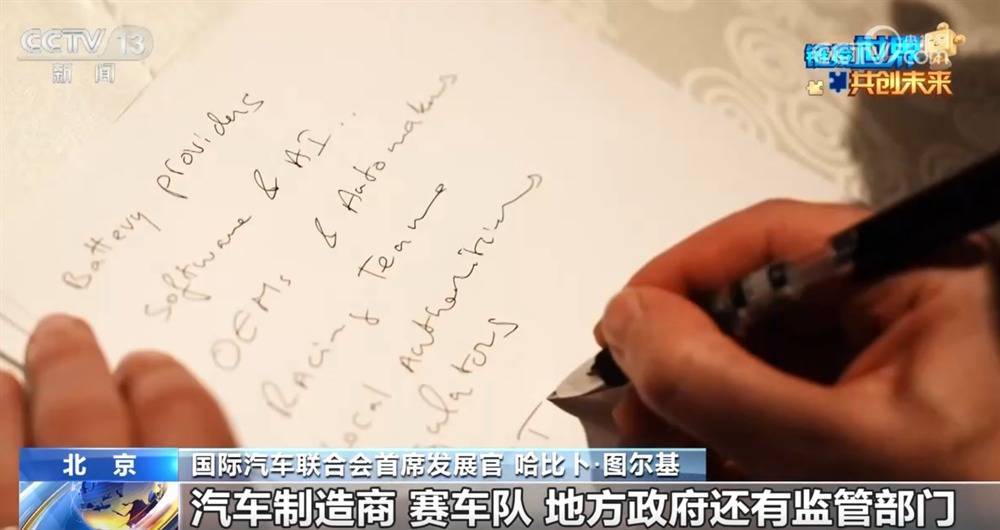 CCTV 13
新闻
链接世界
共创未来
Battery providers
Software & AI ..
OEMs & Automakers
Racing Team
Local Authorities
gulators
北京
国际汽车联合会首席发展官 哈比卜·图尔基
汽车制造商 赛车队 地方政府还有监管部门